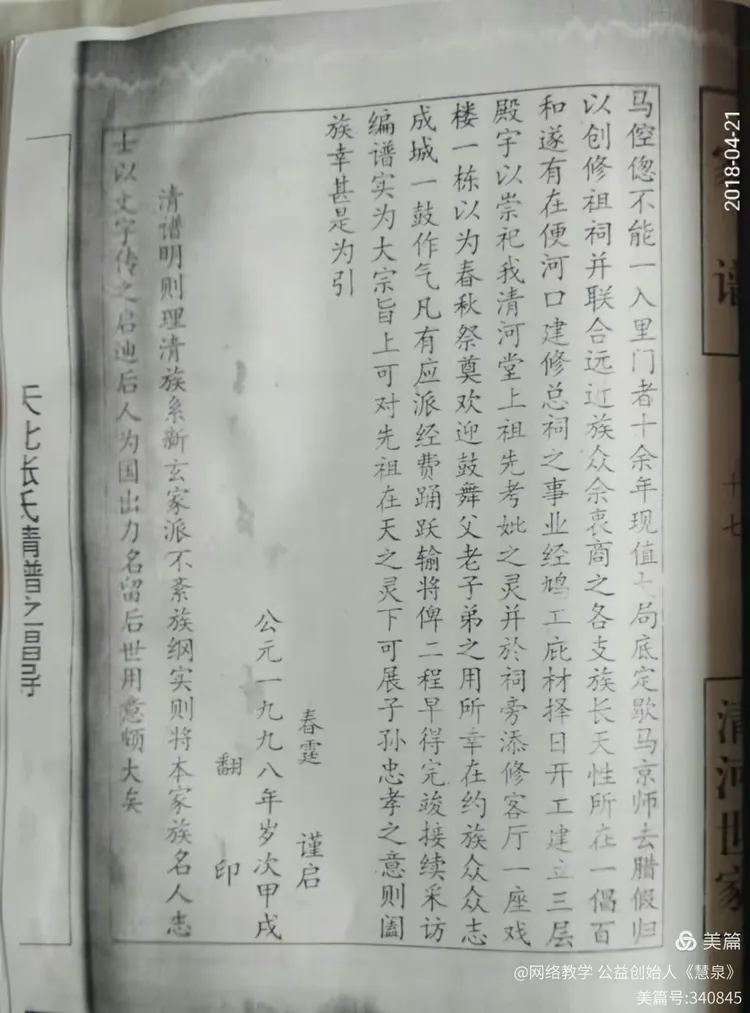 马倥偬不能一入里门者十余年现值大局底定歇马京师去腊假归
以创修祖祠并联合远近族众余衷商之各支族长天性所在一倡百
和遂有在便河口建修总祠之事业经鸠工庇材择日开工建立三层
殿宇以崇祀我清河堂上祖先考妣之灵并於祠旁添修客厅一座戏
楼一栋以为春秋祭奠欢迎鼓舞父老子弟之用所幸在约族众众志
成城一鼓作气凡有应派经费踊跃输将俾二程早得完竣接续采访
编谱实为大宗旨上可对先祖在天之灵下可展子孙忠孝之意则阖
族幸甚是为引
春霆 谨启
公元一九九八年岁次甲戌
翻 印
清谱明则理清族系新玄家派不紊族纲实则将本家族名人志
士以文字传之启迪后人为国出力名留后世用意颇大矣
谱
十七
清河世家
2018-04-21
美篇
@网络教学 公益创始人《慧泉》
美篇号:340845